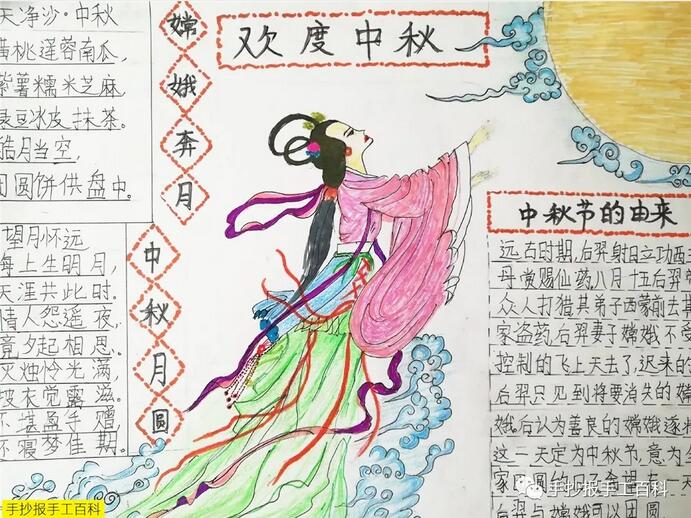 欢度中秋
嫦娥奔月
天净沙·中秋
黄桃莲蓉南瓜,
紫薯糯米芝麻
绿豆冰皮抹茶。
皓月当空,
团圆饼供盘中。
中秋月圆
望月怀远
海上生明月,
天涯共此时。
情人怨遥夜,
竟夕起相思。
灭烛怜光满,
披衣觉露滋。
不堪盈手赠,
还寝梦佳期。
中秋节的由来
远古时期,后羿射日立功西王
丹赏赐仙药,八月十五后羿
众人打猎其弟子西蒙前去
家盗药,后羿妻子嫦娥不受
控制的飞上天去了,迟来的
后羿只见到将要消失的嫦
娥。后认为善良的嫦娥逐
这一天定为中秋节,意为全
家团圆的日子希望有一天
后羿与嫦娥可以团圆
手抄报手工百科
手抄报手工百科